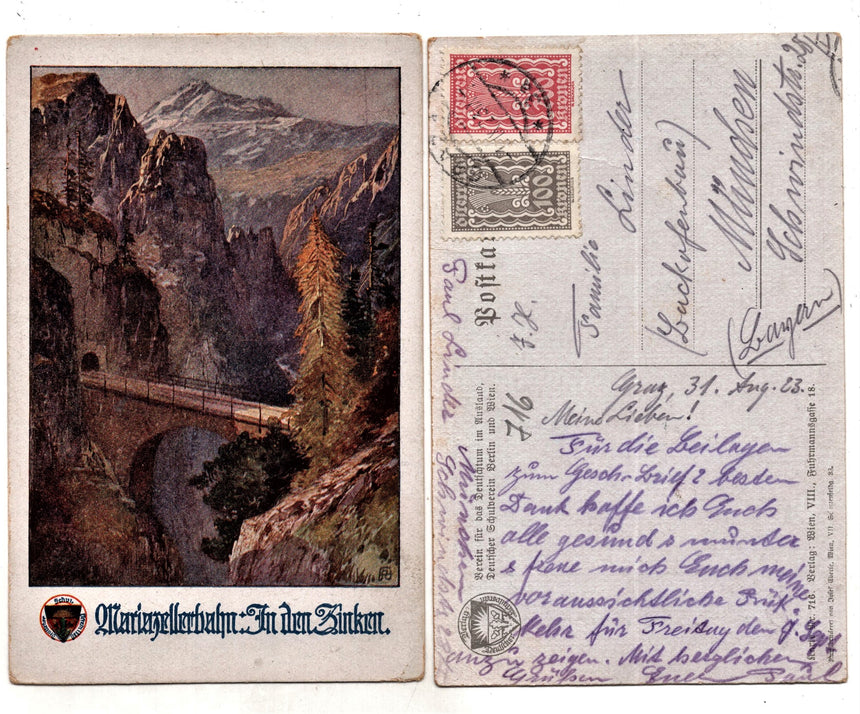 Mariazellerbahn: In den Zinken.
Schul
österreich
200
österreich
österreich
100
österreich
Postka
z. H.
Familie
Linder
(Backofenbau)
München
Schwindstr. 25
(Bayern)
716
Verein für das Deutschtum im Ausland,
Deutscher Schulverein Berlin und Wien.
Graz, 31. Aug. 23.
Meine Lieben!
Für die Beilagen
zum Gesch.-Brief besten
Dank hoffe ich Euch
alle gesund & munter
& freue mich Euch meine
voraussichtliche Rück-
kehr für Freitag den 7. Sept
anzuzeigen. Mit herzlichen
Grüßen Euer Paul
Paul Linder
München
Schwindstr. 25
Karte Nr. 716. Verlag: Wien, VIII., Fuhrmannsgasse 18.